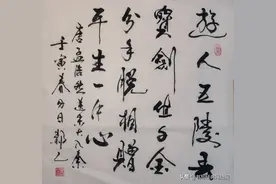 遊人五陵去
寶劍值千金
分手脫相贈
平生一片心
唐孟浩然送朱大入秦
壬寅春分日鄭